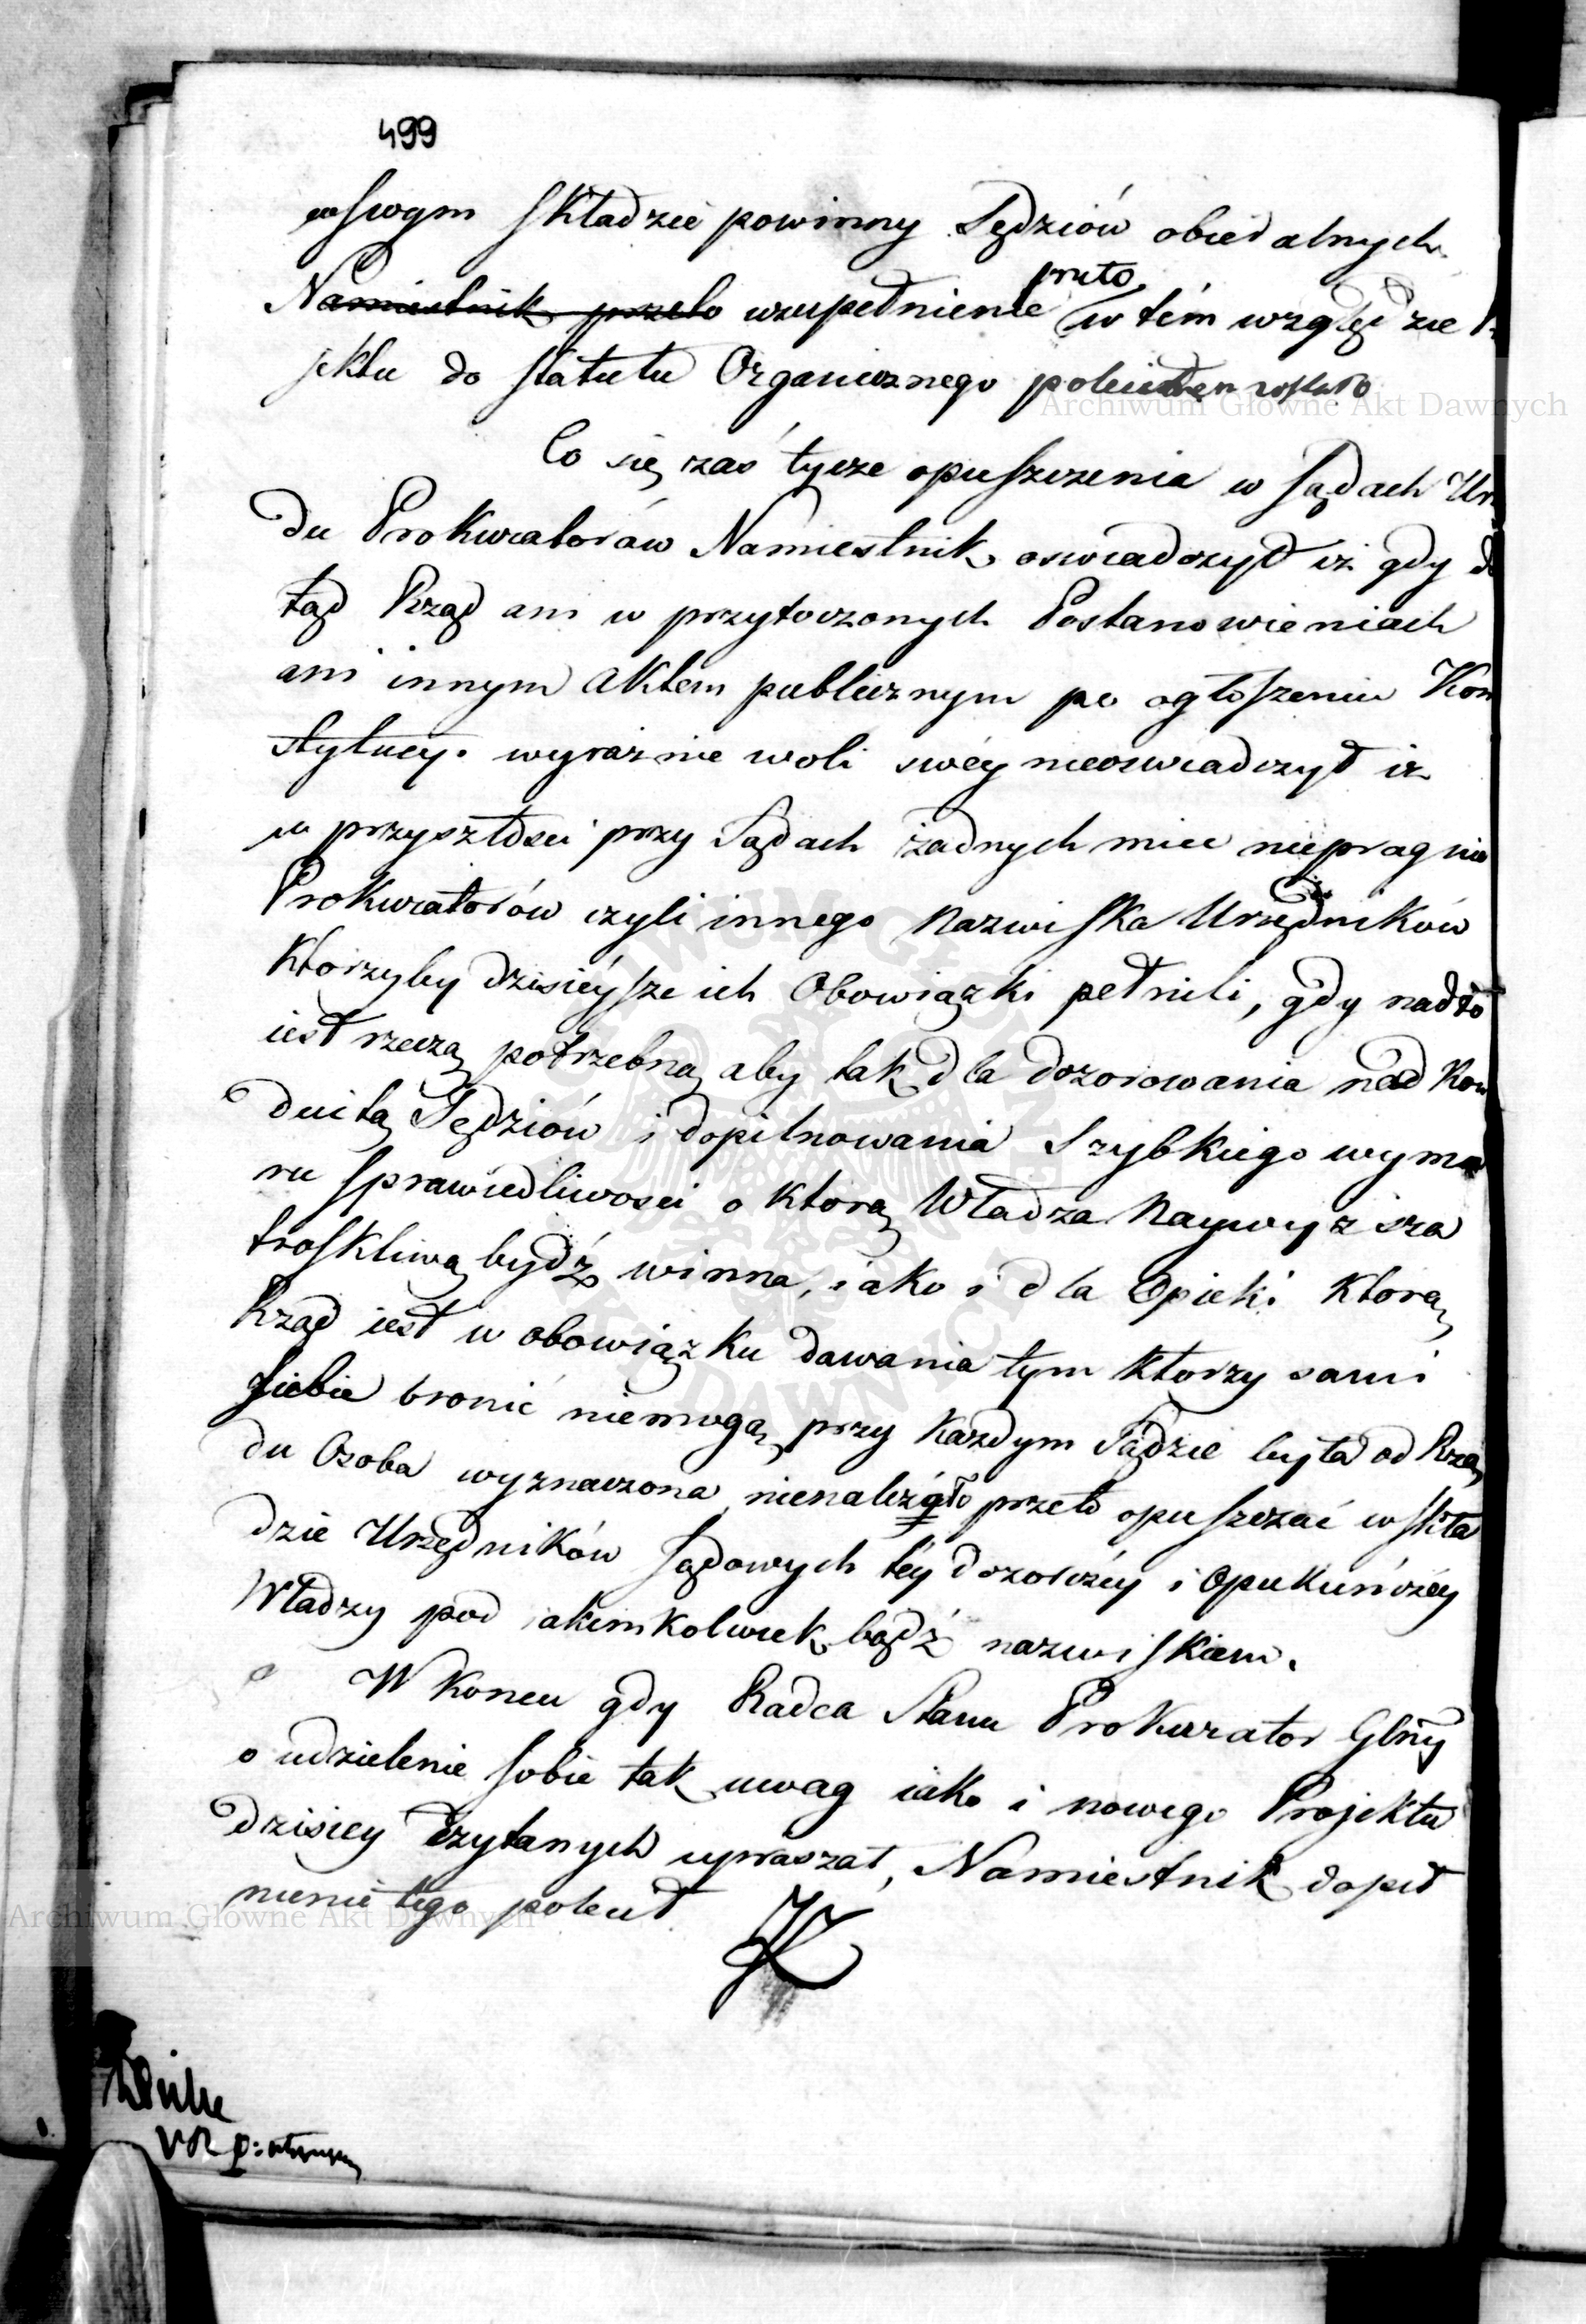 499
w swym składzie powinny Sędziów obieralnych
Namiestnik przeto uzupełnienie przeto w tém względzie
jektu do statutu Organicznego polecił
Co się zaś tycze opuszczenia w sądach Urz
du Prokuratorów Namiestnik oswiadczył iż gdy do
tąd Rząd ani w przytoczonych Postanowieniach
ani innym aktem publicznym po ogłoszeniu Kon
stytucyi wyraźnie woli swéy nieoswiadczył iż
w przyszłości przy Sądach żadnych miec niepragnie
Prokuratorów czyli innego nazwiska Urzędników
Ktorzyby dzisiéysze ich Obowiązki pełnili, gdy nadto
iest rzeczą potrzebną aby tak dla dozorowania nad Kon
duitą Sędziów i dopilnowania Szybkiego wymia
ru sprawiedliwosci o Ktorą Władza Naywyzsza
troskliwą bydź winna, iako i dla Opieki Ktorą
Rząd iest w obowiązku dawania tym Ktorzy sami
siebie bronić niemogą, przy Każdym Sądzie była od Rzą
du Osoba wyznaczona, nienależało przeto opuszczać w skła
dzie Urzędników sądowych téy dozorczéy i Opiekuńczéy
Władzy pod iakimkolwiek bądź nazwiskiem.
W Koncu gdy Radca Stanu Prokurator Glny
o udzielenie sobie tak uwag iako i nowego Projektu
dzisiey czytanych upraszał, Namiestnik dopeł
nienie tego polecił
Archiwum Główne Akt Dawnych
Archiwum Główne Akt Dawnych